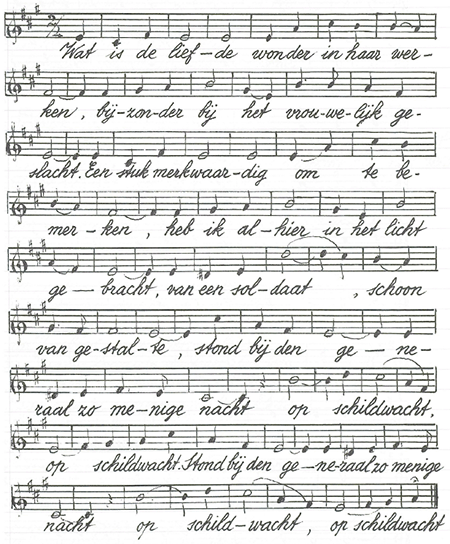 2/4
Wat is de lief-de wonder in haar wer-
ken, bij-zon-der bij het vrou-we-lijk ge-
slacht. Een stuk merkwaar-dig om te be-
mer-ken, heb ik al-hier in het licht
ge-bracht, van een sol-daat, schoon
van ge-stal-te, stond bij den ge-ne-
raal zo me-nige nacht op schildwacht,
op schildwacht. Stond bij den ge-ne-raal zo menige
nacht op schild-wacht, op schildwacht